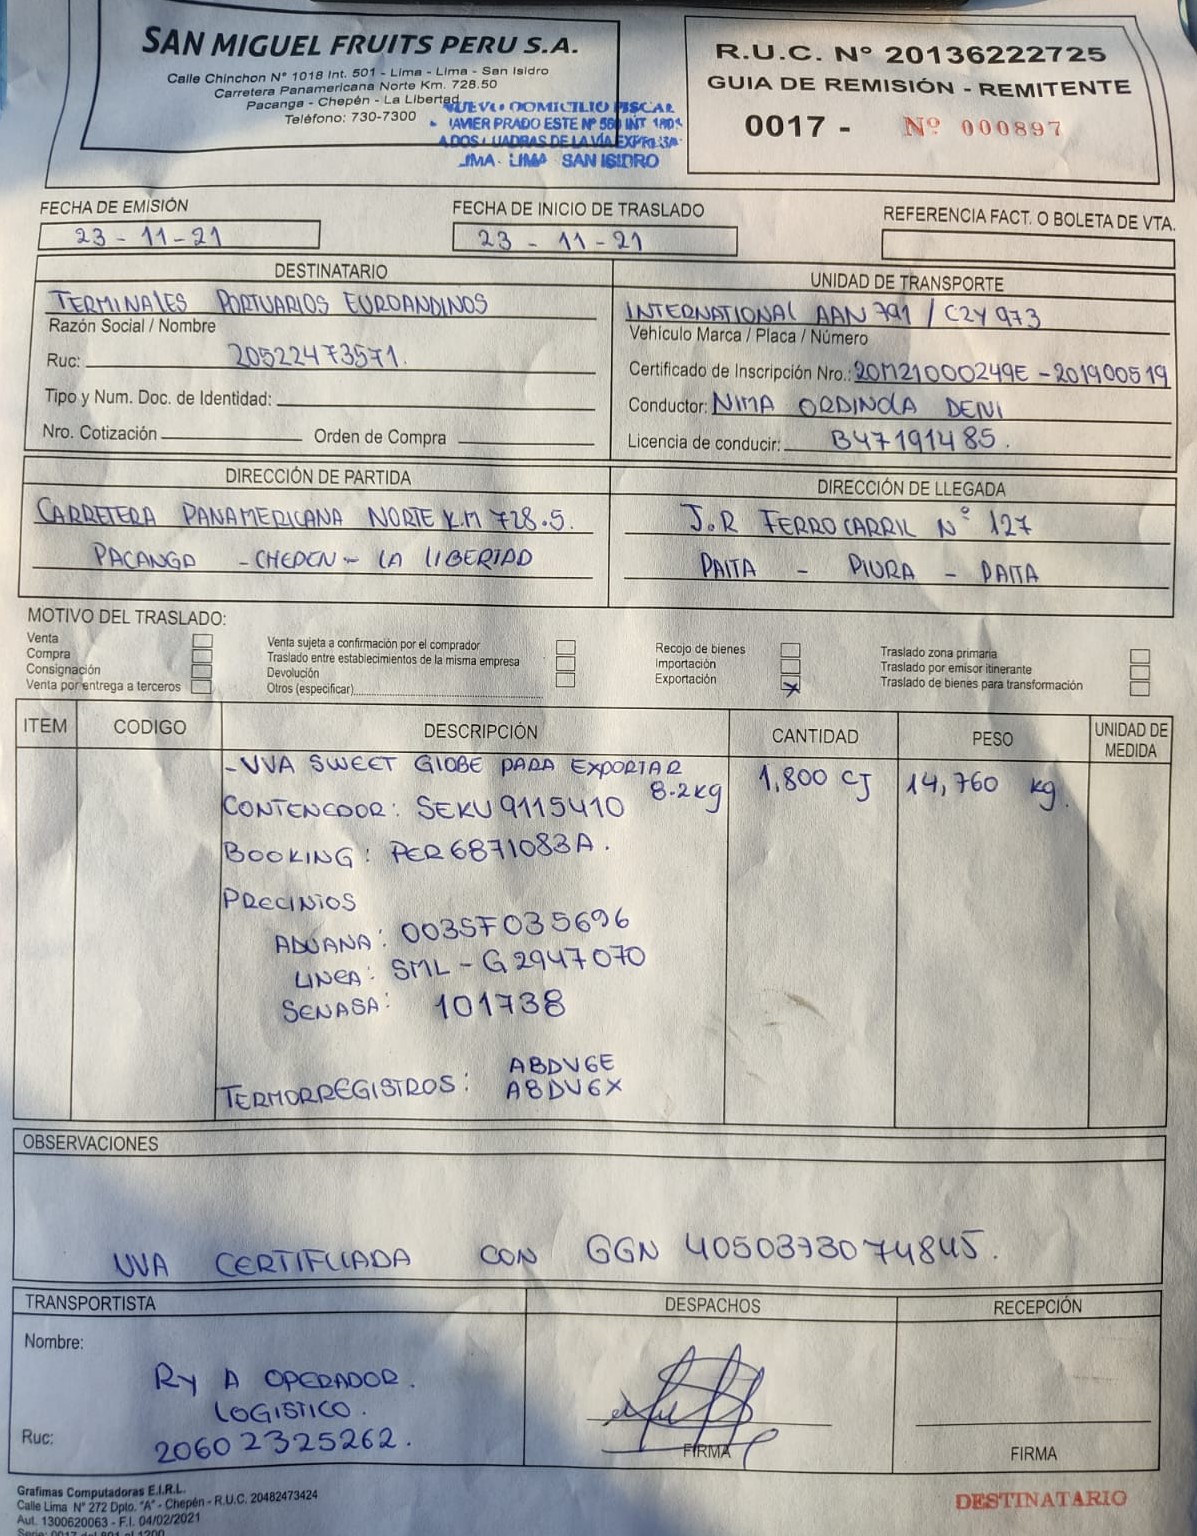 SAN MIGUEL FRUITS PERU S.A.
Calle Chinchon N° 1018 Int. 501 - Lima - Lima - San Isidro
Carretera Panamericana Norte Km. 728.50
Pacanga - Chepén - La Libertad
Teléfono: 730-7300
NUEVO DOMICILIO FISCAL
JAVIER PRADO ESTE Nº 560 INT
CUADRAS DE LA VÍA EXPRESA
LIMA - LIMA SAN ISIDRO
R.U.C. N° 20136222725
GUIA DE REMISIÓN - REMITENTE
0017 - Nº 000897
FECHA DE EMISIÓN
23 - 11 - 21
FECHA DE INICIO DE TRASLADO
23 - 11 - 21
REFERENCIA FACT. O BOLETA DE VTA.
DESTINATARIO
TERMINALES PORTUARIOS EUROANDINOS
Razón Social / Nombre
Ruc: 20522473571.
Tipo y Num. Doc. de Identidad:
Nro. Cotización Orden de Compra
UNIDAD DE TRANSPORTE
INTERNATIONAL AAN 791 / C2Y 973
Vehículo Marca / Placa / Número
Certificado de Inscripción Nro.: 20M21000249E - 201900519
Conductor: NIMA ORDINOLA DENI
Licencia de conducir: B47191485.
DIRECCIÓN DE PARTIDA
CARRETERA PANAMERICANA NORTE K.M 728.5.
PACANGA - CHEPEN - LA LIBERTAD
DIRECCIÓN DE LLEGADA
J.R FERROCARRIL N° 127
PAITA - PIURA - PAITA
MOTIVO DEL TRASLADO:
Venta
Compra
Consignación
Venta por entrega a terceros
Venta sujeta a confirmación por el comprador
Traslado entre establecimientos de la misma empresa
Devolución
Otros (especificar)
Recojo de bienes
Importación
Exportación X
Traslado zona primaria
Traslado por emisor itinerante
Traslado de bienes para transformación
ITEM CODIGO DESCRIPCIÓN CANTIDAD PESO UNIDAD DE MEDIDA
- UVA SWEET GLOBE PARA EXPORTAR
8.2kg 1,800 CJ 14,760 kg.
CONTENEDOR: SEKU9115410
BOOKING: PER6871083A.
PRECINIOS
ADUANA: 003SF035696
LINEA: SML - G2947070
SENASA: 101738
ABDV6E
TERMORREGISTROS: ABDV6X
OBSERVACIONES
UVA CERTIFICADA CON GGN 4050373074845.
TRANSPORTISTA
Nombre:
RY A OPERADOR.
LOGISTICO.
Ruc: 20602325262.
DESPACHOS
FIRMA
RECEPCIÓN
FIRMA
Grafimas Computadoras E.I.R.L.
Calle Lima N° 272 Dpto. "A" - Chepén - R.U.C. 20482473424
Aut. 1300620063 - F.I. 04/02/2021
Serie: 0017 del 801 al 1200
DESTINATARIO